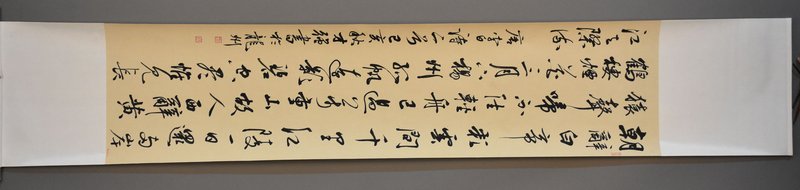 朝辭白帝彩雲間千里江陵一日還兩岸
猿聲啼不住輕舟已過萬重山故人西辭黃
鶴樓煙花三月下揚州孤帆遠影碧空盡惟見長
江天際流唐李白詩二首己亥秋書於龍州